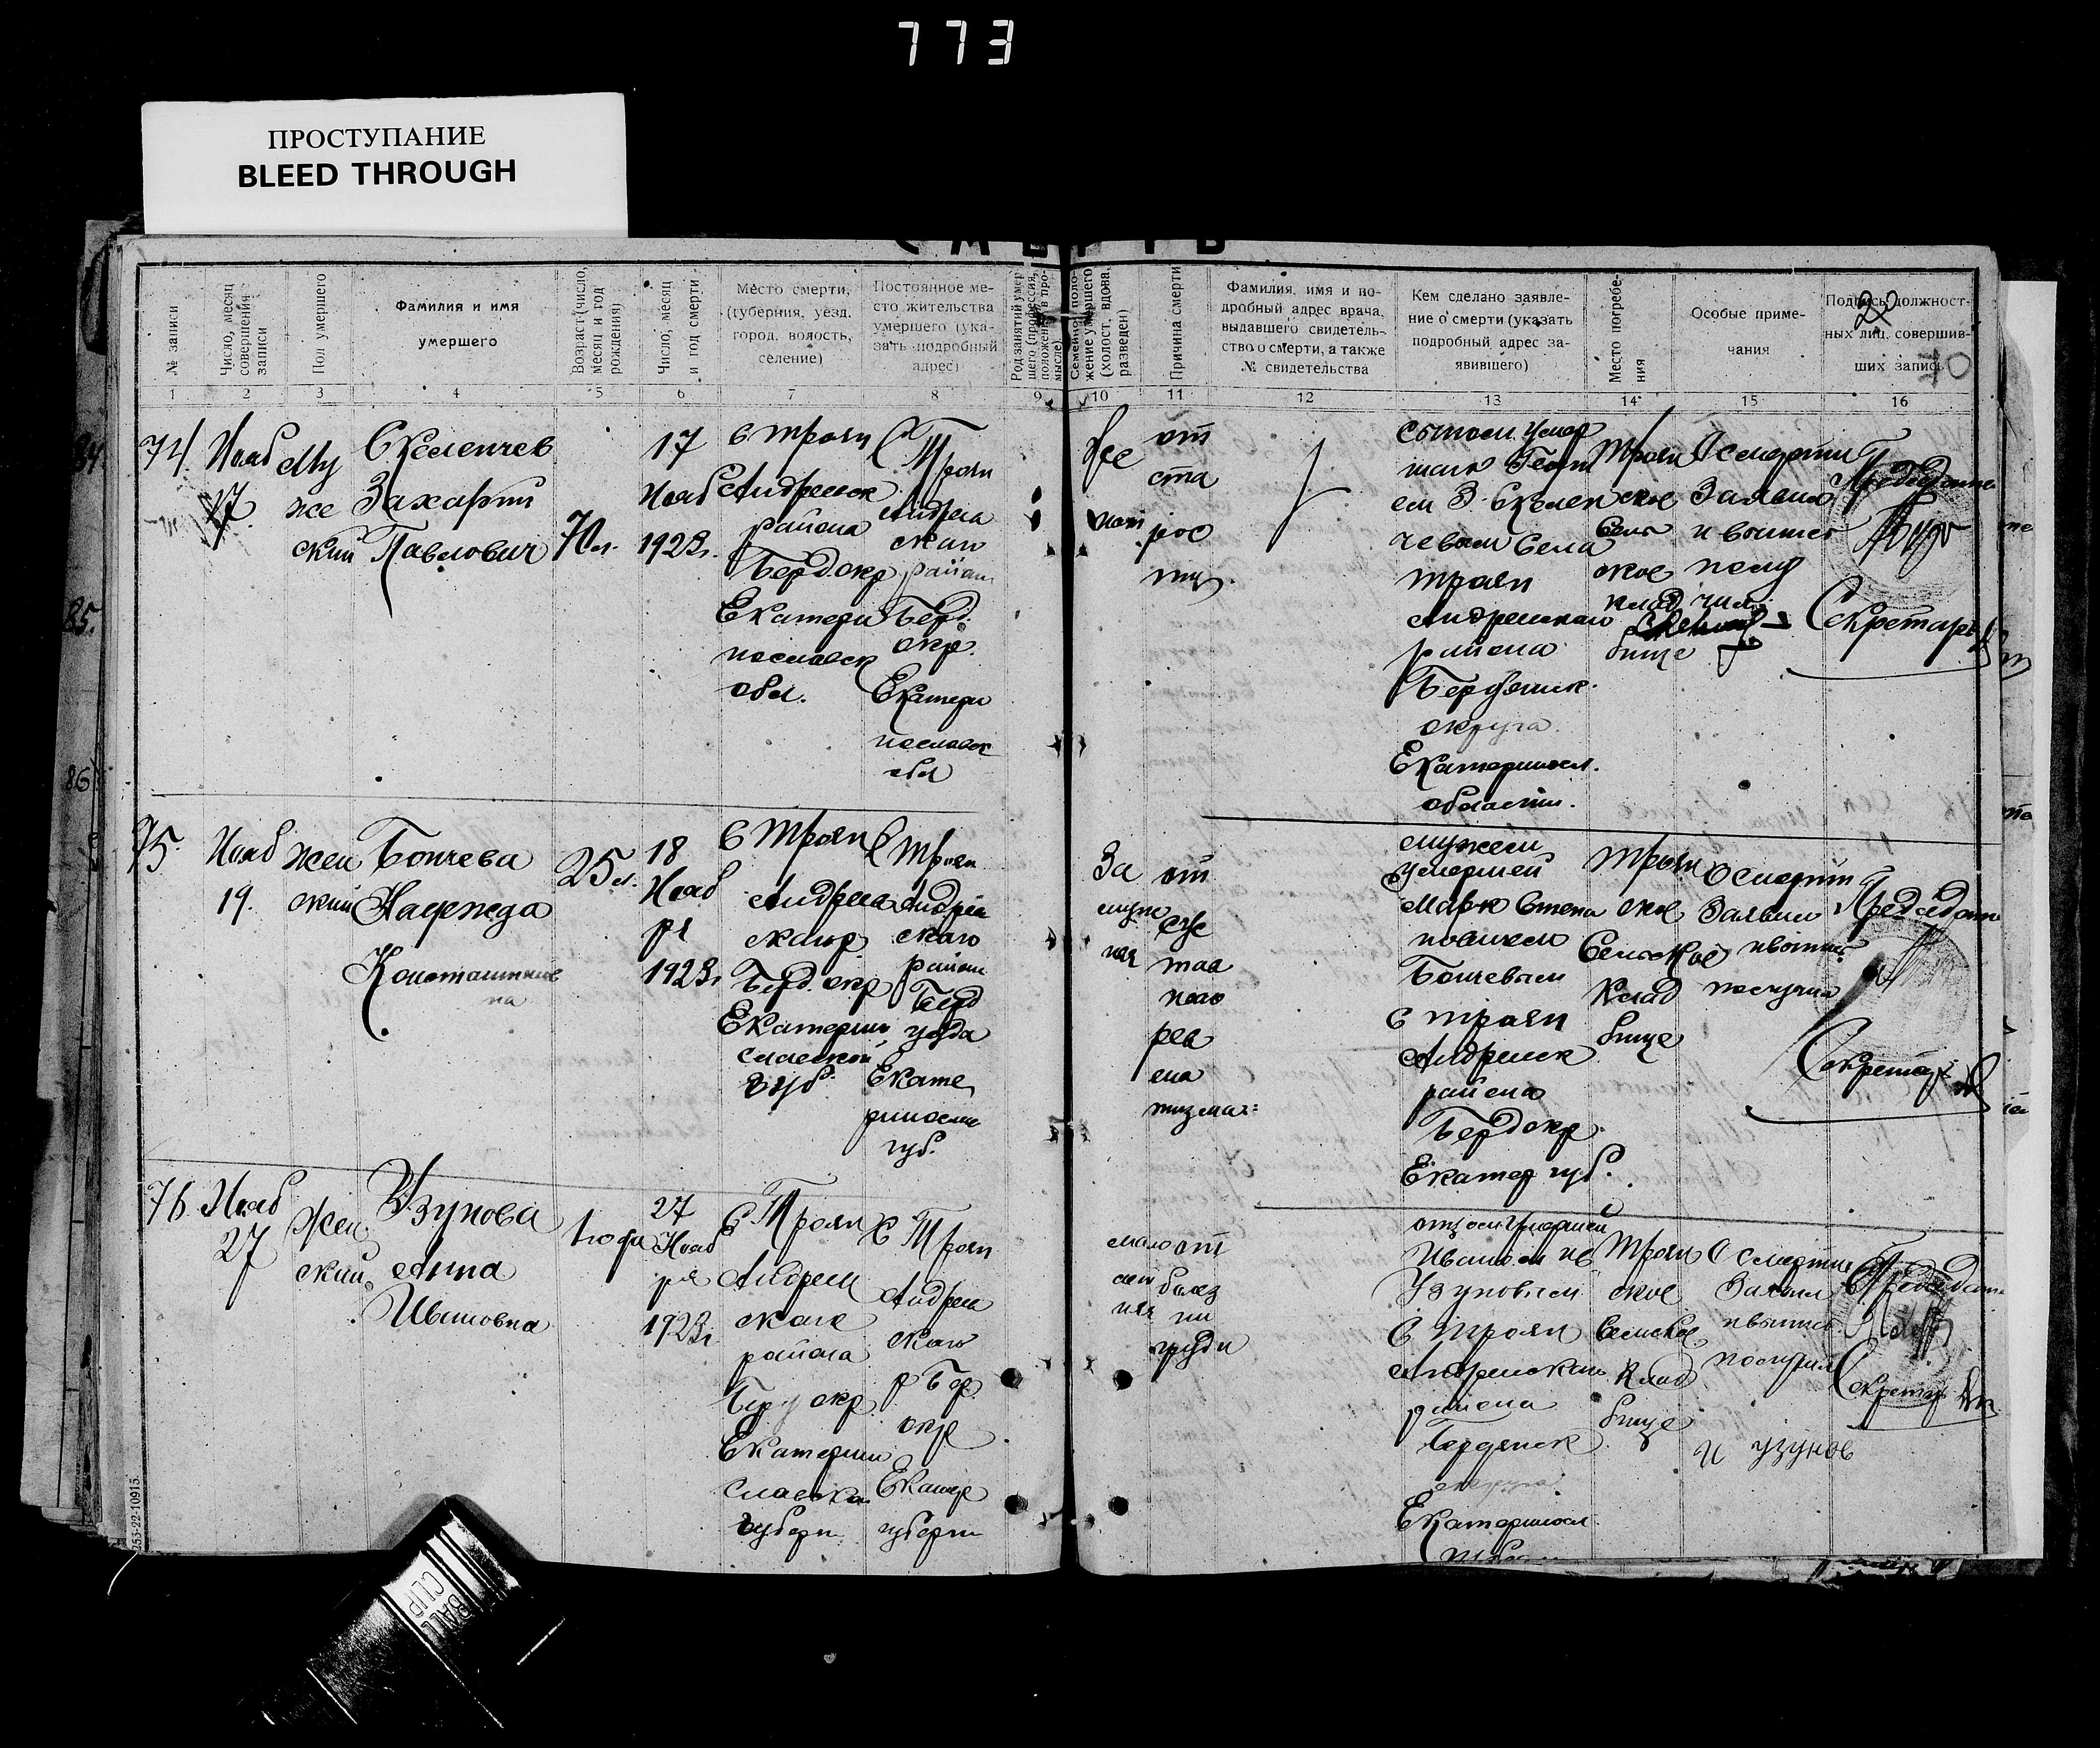 773
ПРОСТУПАНИЕ
BLEED THROUGH
СМЕРТЬ
№ записи
Число, месяц совершения записи
Пол умершего
Фамилия и имя
умершего
Возраст (число, месяц и год рождения)
Число, месяц и год смерти
Место смерти,
(губерния, уезд,
город, волость,
селение)
Постоянное ме-
сто жительства
умершего (ука-
зать подробный
адрес)
Род занятий умер
шего (профессия,
положение в про-
мысле)
Семейное поло-
жение умершего
(холост, вдова,
разведен)
Причина смерти
Фамилия, имя и по-
дробный адрес врача,
выдавшего свидетель-
ство о смерти, а также
№ свидетельства
Кем сделано заявле-
ние о смерти (указать
подробный адрес за-
явившего)
Место погребе-
ния
Особые приме-
чания
Подпись должност-
ных лиц, совершив-
ших запись
1 2 3 4 5 6 7 8 9 10 11 12 13 14 15 16
74.
Нояб
17.
Му
же
ский
Скеленчев
Захарий
Павлович
70 л.
17
Нояб
1923 г.
С Троян
Андреевск
района
Берд. окр
Екатери
нославск
обл.
С Троян
Андреев
скаго
район
Берд.
окр.
Екатери
нославск
обл
от
ста
рос
ти
Сыном умер
шаго Георги
ем З. Скелен
чевым Села
Троян
Андреевскаго
района
Бердянск.
округа
Екатериносл.
области.
Троян
ское
Сель
ское
клад
бище
О смерти
Заявил
и выпись
полу
чил
Председатель
Секретарь
75.
Нояб
19.
жен
ский
Бончева
Надежда
Константинов
на
25 л.
18
Нояб
ря
1923 г
С Троян
Андреев
скаго р
Берд. окр
Екатерино
славской
губ.
С Троян
Андреев
скаго
район
Берд
уезда
Екате
риносла
губ.
За
муж
няя
от
сус
тав
ного
рев
ма
тизма
мужем
умершей
Марк Степа
новичем
Бончевым
С Троян
Андреевск
района
Берд окр.
Екатер губ.
Троян
ское
Сельское
Клад
бище
О смерти
Заявил
и выпись
получил
Председатель
Секретарь
76
Нояб
27
Жен
ский
Узунова
Анна
Ивановна
1 года
27
Нояб
ря
1923 г
С Троян
Андреев
скаго
района
Берд окр
Екатерино
славска
губерн
С Троян
Андреев
скаго
р Бер
окр
Екатер
губерн
мало
лет
няя
от
болез
ни
груди
отцом Умершей
Узуновым
С Троян
Андреевскаго
района
Бердянск
округа
Екатериносл
Троян
ское
Сельское
Клад
бище
О смерти
Заявил
и выпись
получил
И Узунов
Председатель
Секретарь
253-22-10915.
BALL
CLIP
84
85.
86